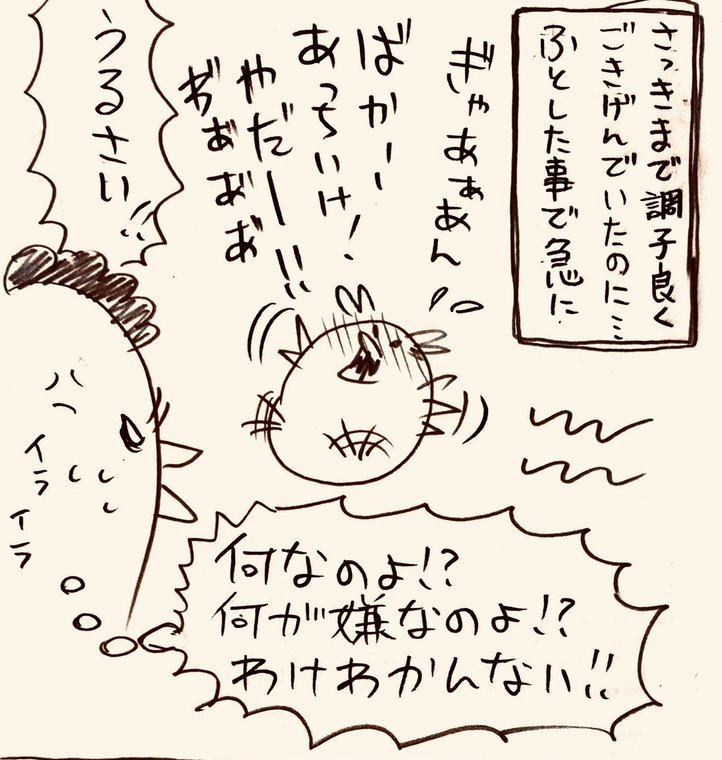 さっきまで調子良く
ごきげんでいたのに…
ふとした事で急に
ぎゃあぁあん
ばかーー
あっちいけ!
やだーー!!
ぢぁぁぁ
うるさい!!
イライラ
何なのよ!?
何が嫌なのよ!?
わけわかんない!!